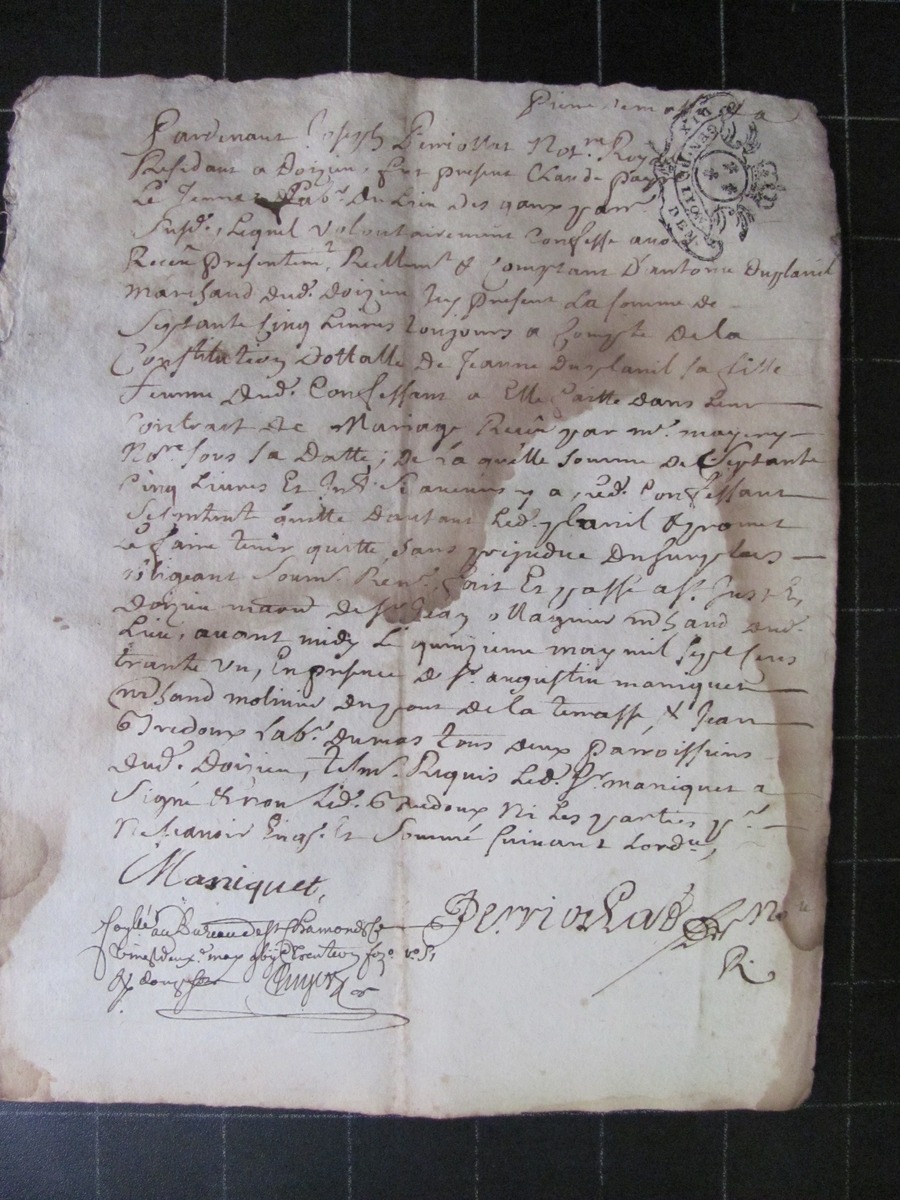 Pardevant Joseph Perriollat Not.re Roy
Residant a Doizieu, fut present Claude
Le Jeune Lab.r du Lieu des gaux parr.
Susd., Lequel volontairement Confesse avoir
Receu presentem.t Reellem.t & Comptant D'antoine Duplanil
Marchand dud. doizieu Icy present La somme de
Septante Cinq Livres toujours a Compte de la
Constitution dottalle de Jeanne Duplanil sa fille
femme dud. Confessant a Elle faitte dans Leur
Contract de Mariage Receu par m.e
No.re sous sa Datte; de laquelle somme de Septante
Cinq Livres Et led. Confessant
quitte dautant Led. planil & promet
Le faire tenir quitte sans prejudice du surplus
obligeant Soum. Ren. fait Et passé a St. Just En
doizieu maison de Sr. Jean ollagnier mchand dud.
Lieu, avant midy Le quinzieme may mil sept Cens
trante un, En presence de Sr. augustin maniquet
mchand molinier du pont de la terrasse, & Jean
Gredoux Lab.r du mas tous deux parroissiens
dud. Doizieu, tesm. Requis Led. Sr. maniquet a
Signé & non Led. Gredoux ni Les parties p.r
Ne scavoir Enq.s Et Sommé suivant Lord.ce,
Maniquet,
Perriollat No.re
R.
Conllé au Bureau de St Chamond Ce
vingt deux.e may
DIX
GEN. DE LYON
DEN.